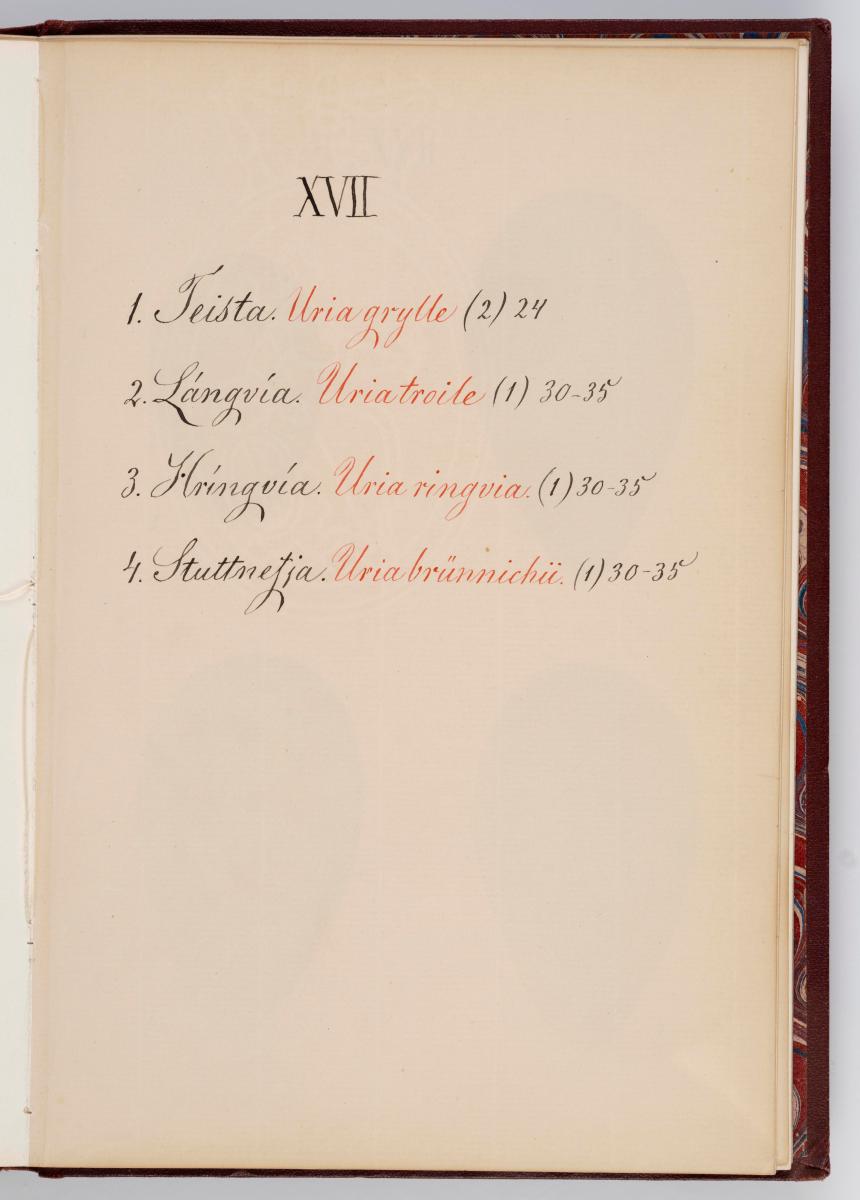 XVII
1. Teista. Uria grylle (2) 24
2. Lángvía. Uria troile (1) 30-35
3. Hríngvía. Uria ringvia. (1) 30-35
4. Stuttnefja. Uria brünnichii. (1) 30-35